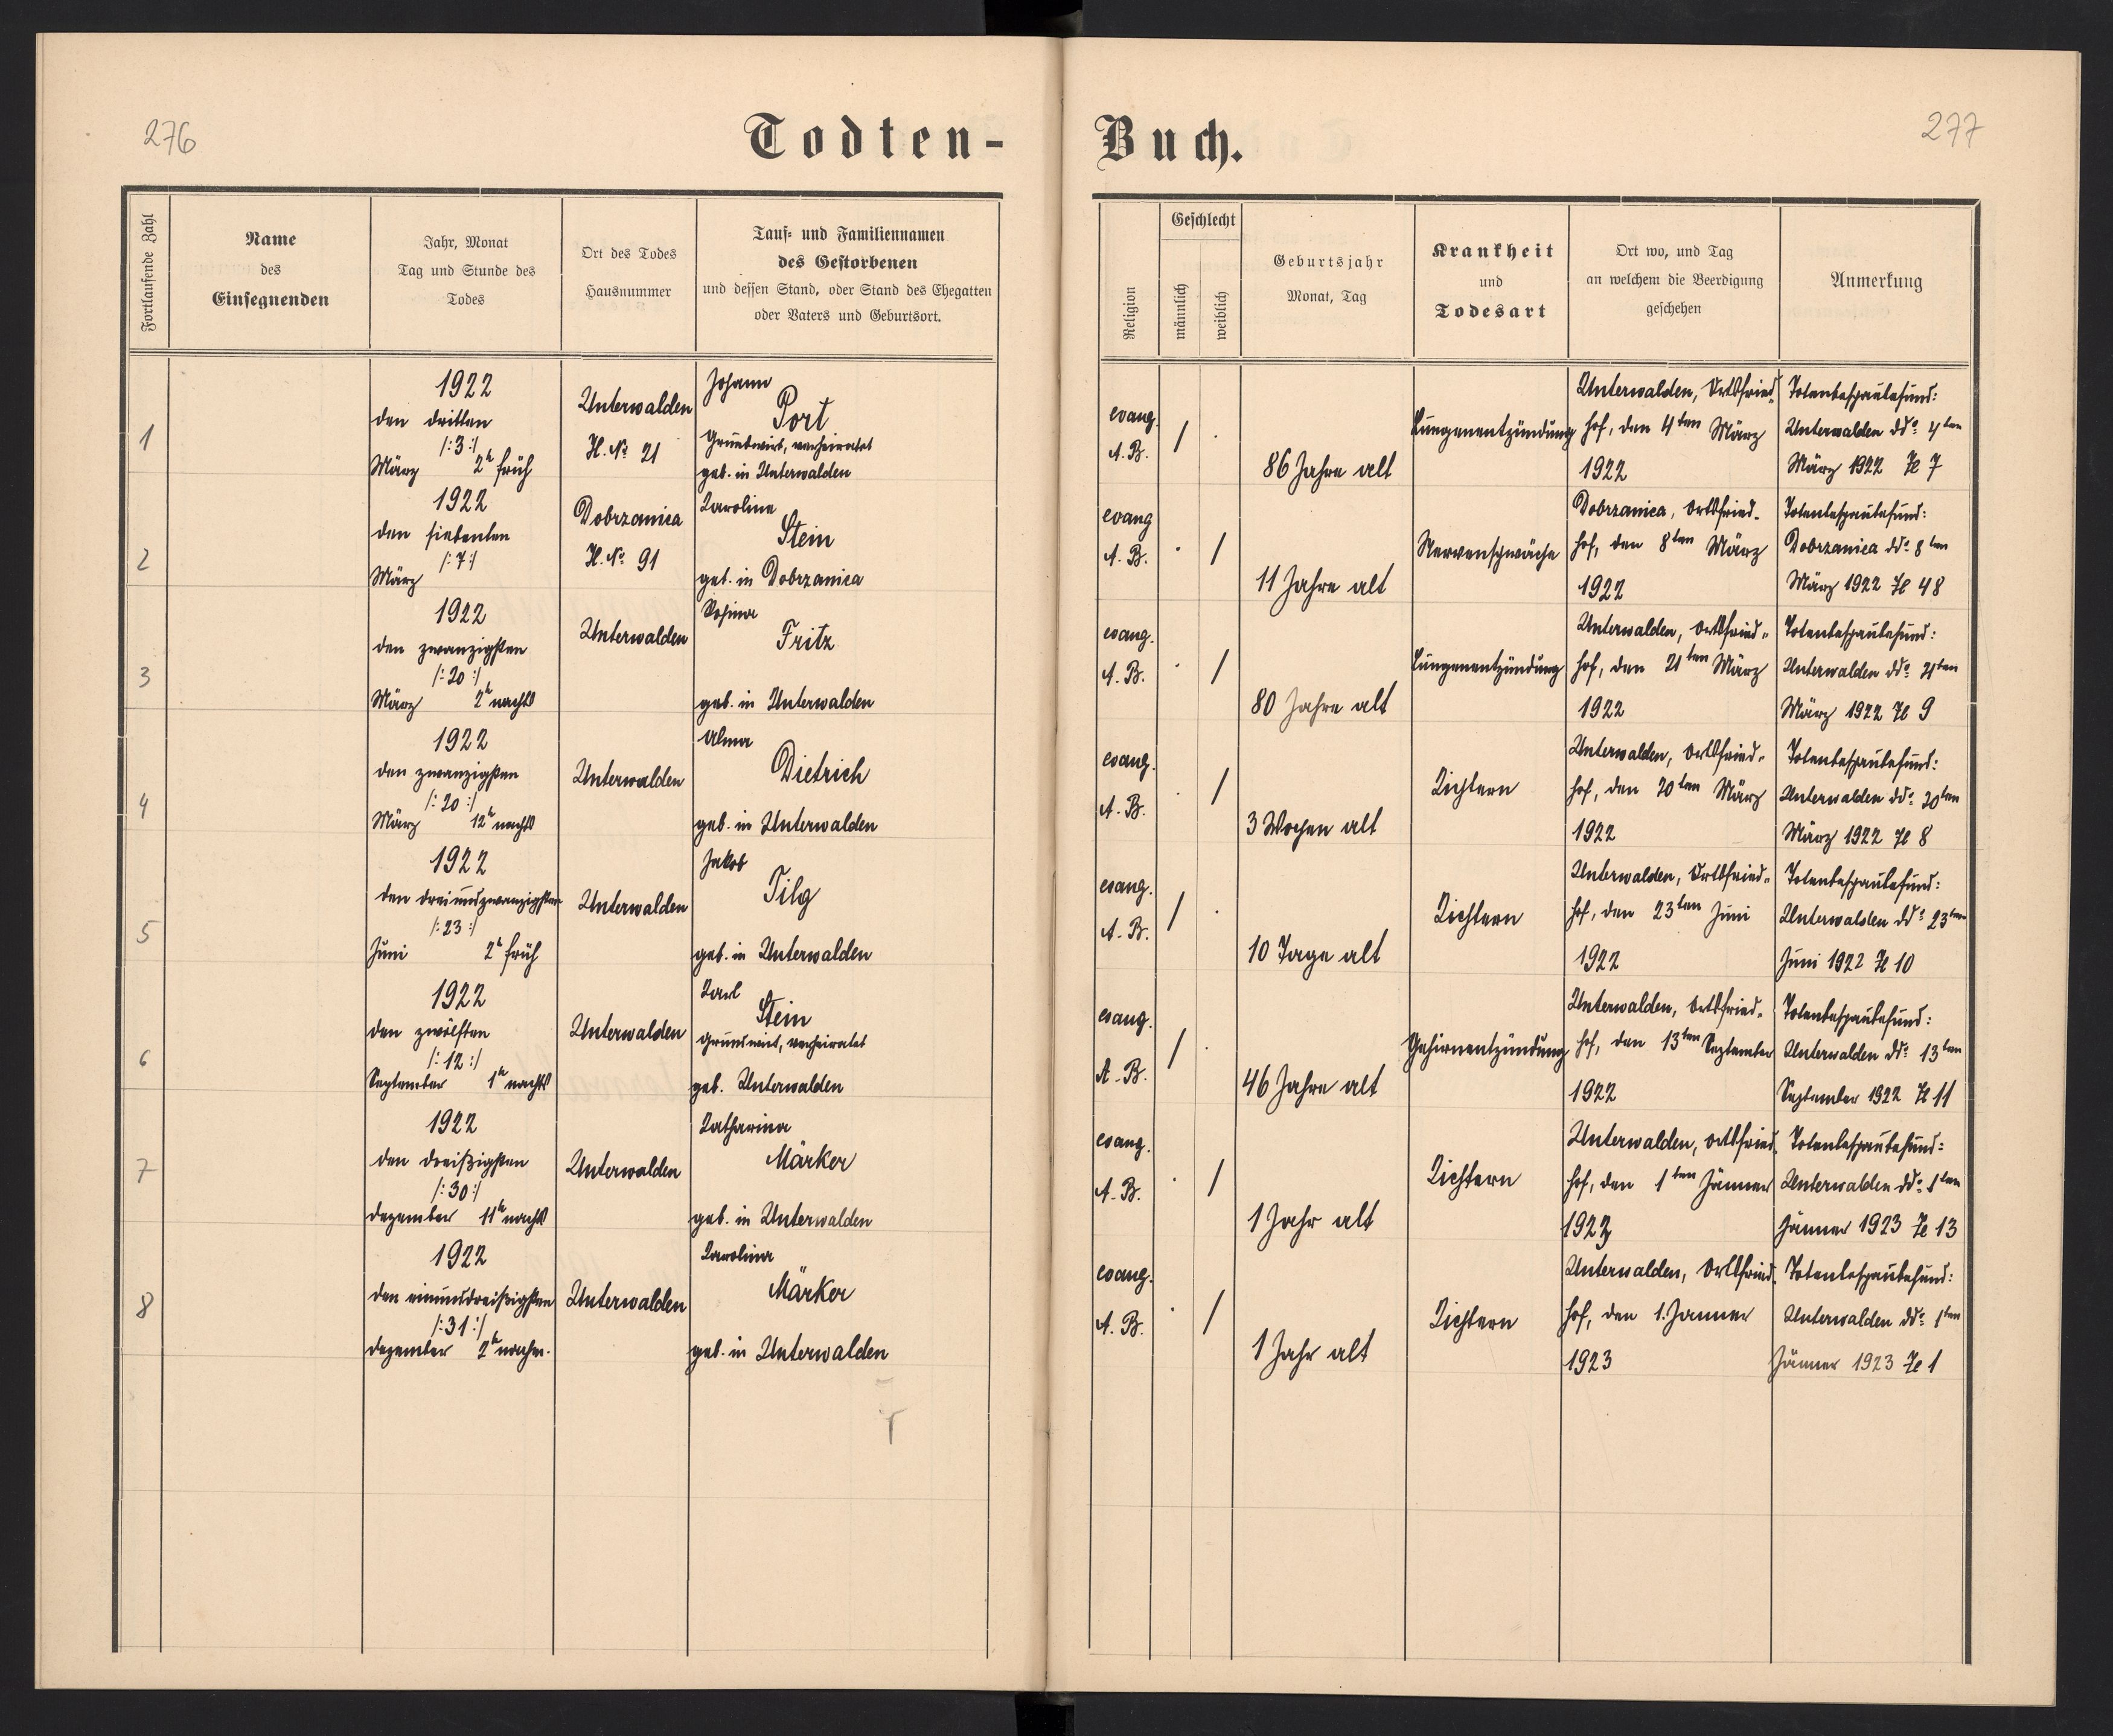 276
Todten-
Fortlaufende Zahl
Name
des
Einsegnenden
Jahr, Monat
Tag und Stunde des
Todes
Ort des Todes
Hausnummer
Tauf- und Familiennamen
des Gestorbenen
und dessen Stand, oder Stand des Ehegatten
oder Vaters und Geburtsort.
1
1922
den dritten
/:3:/
März 2h früh
Unterwalden
H. № 21
Johann
Port
Grundwirt, verheiratet
geb. in Unterwalden
2
1922
den siebenten
/:7:/
März
Dobrzanica
H. № 91
Karoline
Stein
geb. in Dobrzanica
3
1922
den zwanzigsten
/:20:/
März 2h nachts
Unterwalden
Rosina
Fritz
geb. in Unterwalden
4
1922
den zwanzigsten
/:20:/
März 12h nachts
Unterwalden
Alma
Dietrich
geb. in Unterwalden
5
1922
den dreiundzwanzigsten
/:23:/
Juni 2h früh
Unterwalden
Jakob
Tilg
geb. in Unterwalden
6
1922
den zwölften
/:12:/
September 1h nachts
Unterwalden
Karl
Stein
Grundwirt, verheiratet
geb. Unterwalden
7
1922
den dreißigsten
/:30:/
Dezember 11h nachts
Unterwalden
Katharina
Märker
geb. in Unterwalden
8
1922
den einunddreißigsten
/:31:/
Dezember 2h nachm.
Unterwalden
Karolina
Märker
geb. in Unterwalden
277
Buch.
Religion
Geschlecht
männlich
weiblich
Geburtsjahr
Monat, Tag
Krankheit
und
Todesart
Ort wo, und Tag
an welchem die Beerdigung
geschehen
Anmerkung
evang.
A. B.
/ .
86 Jahre alt
Lungenentzündung
Unterwalden, Ortsfried-
hof, den 4ten März
1922
Totenbeschaubefund:
Unterwalden ddo 4ten
März 1922 Ze 7
evang
A. B.
. /
11 Jahre alt
Nervenschwäche
Dobrzanica, Ortsfried-
hof, den 8ten März
1922
Totenbeschaubefund:
Dobrzanica ddo 8ten
März 1922 Ze 48
evang.
A. B.
. /
80 Jahre alt
Lungenentzündung
Unterwalden, Ortsfried-
hof, den 21ten März
1922
Totenbeschaubefund:
Unterwalden ddo 21ten
März 1922 Ze 9
evang.
A. B.
. /
3 Wochen alt
Lichtern
Unterwalden, Ortsfried-
hof, den 20ten März
1922
Totenbeschaubefund:
Unterwalden ddo 20ten
März 1922 Ze 8
evang.
A. B.
/ .
10 Tage alt
Lichtern
Unterwalden, Ortsfried-
hof, den 23ten Juni
1922
Totenbeschaubefund:
Unterwalden ddo 23ten
Juni 1922 Ze 10
evang.
A. B.
/ .
46 Jahre alt
Gehirnentzündung
Unterwalden, Ortsfried-
hof, den 13ten September
1922
Totenbeschaubefund:
Unterwalden ddo 13ten
September 1922 Ze 11
evang.
A. B.
. /
1 Jahr alt
Lichtern
Unterwalden, Ortsfried-
hof, den 1ten Jänner
1923
Totenbeschaubefund:
Unterwalden ddo 1ten
Jänner 1923 Ze 13
evang.
A. B.
. /
1 Jahr alt
Lichtern
Unterwalden, Ortsfried-
hof, den 1. Janner
1923
Totenbeschaubefund:
Unterwalden ddo 1ten
Jänner 1923 Ze 1